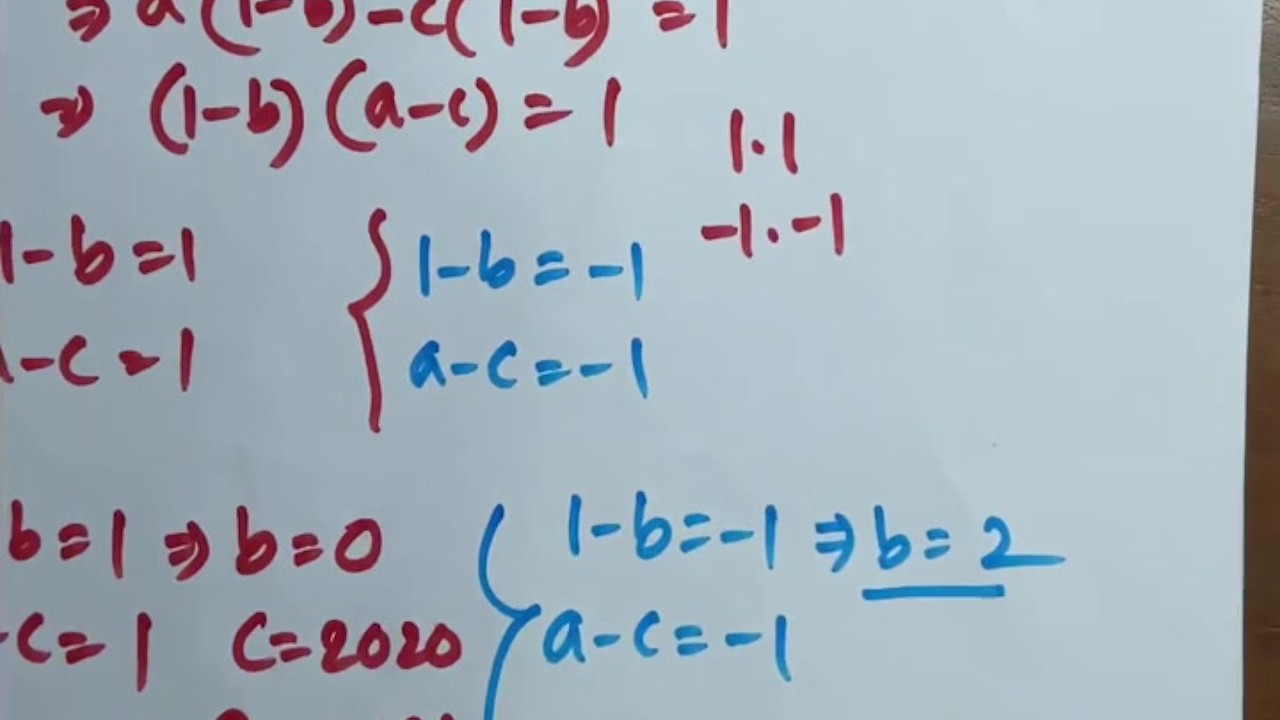 ⇒ a(1-b)-c(1-b) = 1
⇒ (1-b)(a-c) = 1
1.1
-1.-1
1-b=1
-c=1
1-b=-1
a-c=-1
b=1 ⇒ b=0
-c=1 c=2020
1-b=-1 ⇒ b=2
a-c=-1